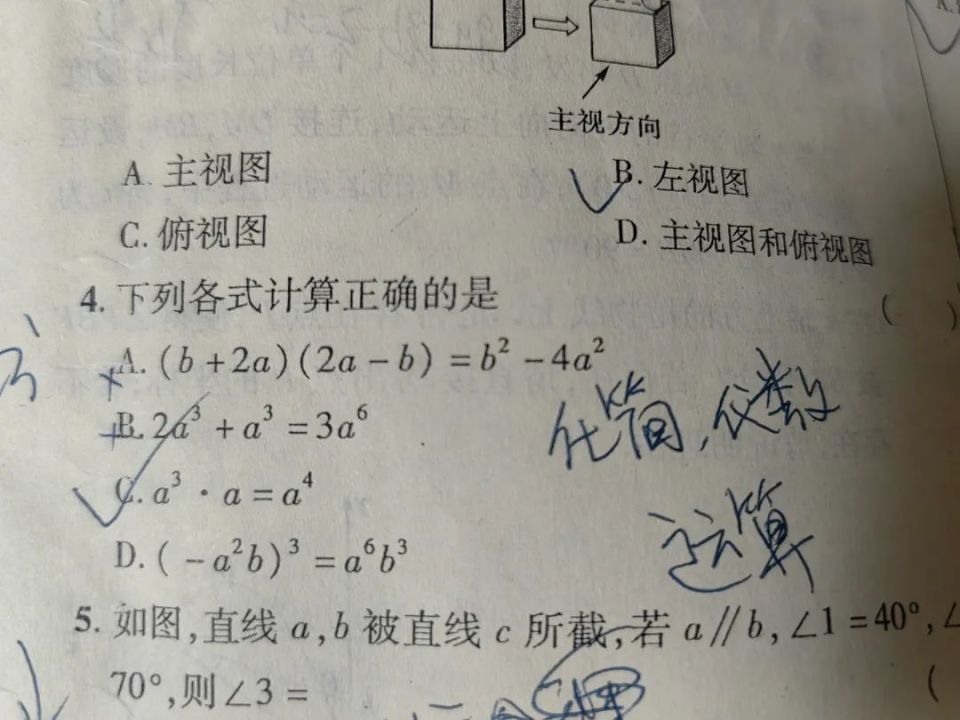 主视方向
A. 主视图
B. 左视图
C. 俯视图
D. 主视图和俯视图
4. 下列各式计算正确的是 ( )
A. (b+2a)(2a-b)=b²-4a²
B. 2a³+a³=3a⁶
C. a³·a=a⁴
D. (-a²b)³=a⁶b³
化简,代数
运算
5. 如图,直线 a,b 被直线 c 所截,若 a∥b,∠1=40°,∠
70°,则∠3= (